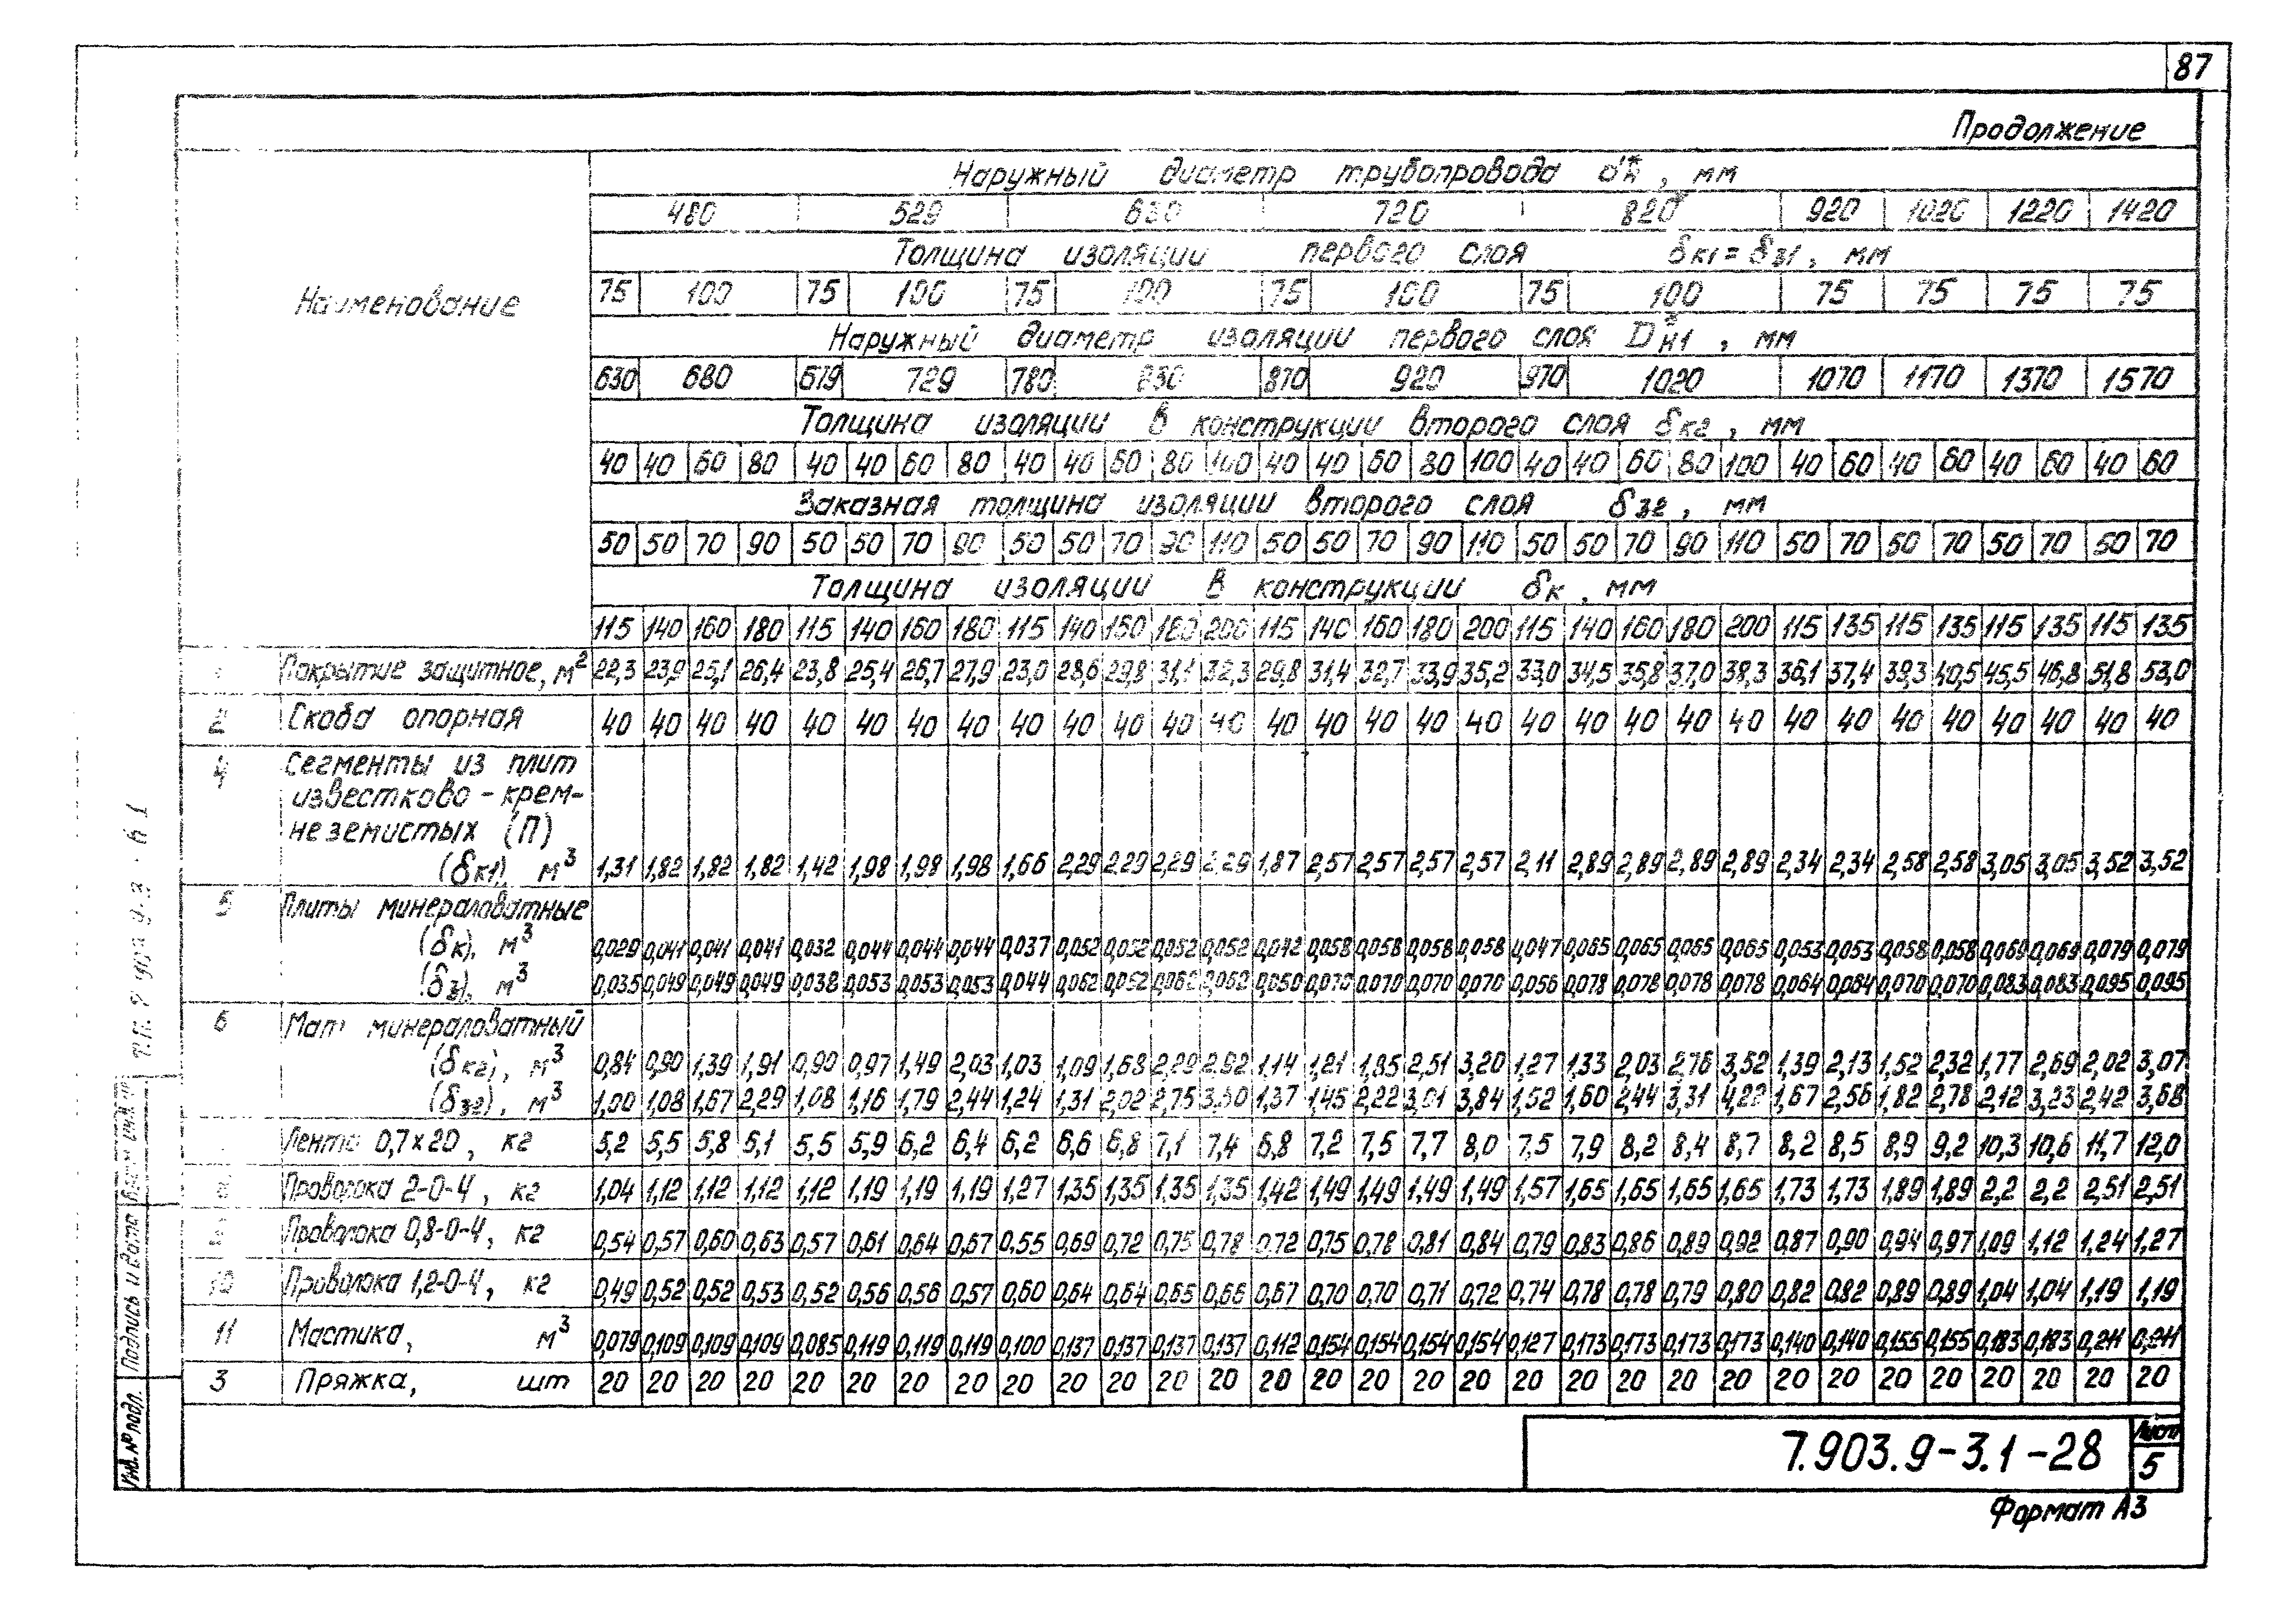 87
Продолжение
Наименование
Наружный диаметр трубопровода dн*, мм
480 529 630 720 820 920 1020 1220 1420
Толщина изоляции первого слоя δк1 = δз1, мм
75 100 75 100 75 100 75 100 75 100 75 75 75 75
Наружный диаметр изоляции первого слоя Dн1*, мм
630 680 679 729 780 830 870 920 970 1020 1070 1170 1370 1570
Толщина изоляции в конструкции второго слоя δк2, мм
40 40 60 80 40 40 60 80 40 40 60 80 100 40 40 60 80 100 40 40 60 80 100 40 60 40 60 40 60 40 60
Заказная толщина изоляции второго слоя δз2, мм
50 50 70 90 50 50 70 90 50 50 70 90 110 50 50 70 90 110 50 50 70 90 110 50 70 50 70 50 70 50 70
Толщина изоляции в конструкции δк, мм
115 140 160 180 115 140 160 180 115 140 160 180 200 115 140 160 180 200 115 140 160 180 200 115 135 115 135 115 135 115 135
Покрытие защитное, м² 22,3 23,9 25,1 26,4 23,8 25,4 26,7 27,9 23,0 28,6 29,8 31,1 32,3 29,8 31,4 32,7 33,9 35,2 33,0 34,5 35,8 37,0 38,3 36,1 37,4 39,3 40,5 45,5 46,8 51,8 53,0
2 Скоба опорная 40 40 40 40 40 40 40 40 40 40 40 40 40 40 40 40 40 40 40 40 40 40 40 40 40 40 40 40 40 40 40
4 Сегменты из плит
известково-крем-
неземистых (П)
(δк1), м³ 1,31 1,82 1,82 1,82 1,42 1,98 1,98 1,98 1,66 2,29 2,29 2,29 2,29 1,87 2,57 2,57 2,57 2,57 2,11 2,89 2,89 2,89 2,89 2,34 2,34 2,58 2,58 3,05 3,05 3,52 3,52
5 Плиты минераловатные
(δк), м³ 0,029 0,041 0,041 0,041 0,032 0,044 0,044 0,044 0,037 0,052 0,052 0,052 0,052 0,042 0,058 0,058 0,058 0,058 0,047 0,065 0,065 0,065 0,065 0,053 0,053 0,058 0,058 0,069 0,069 0,079 0,079
(δз), м³ 0,035 0,049 0,049 0,049 0,038 0,053 0,053 0,053 0,044 0,062 0,062 0,062 0,062 0,050 0,070 0,070 0,070 0,070 0,056 0,078 0,078 0,078 0,078 0,064 0,064 0,070 0,070 0,083 0,083 0,095 0,095
6 Мат минераловатный
(δк2), м³ 0,84 0,90 1,39 1,91 0,90 0,97 1,49 2,03 1,03 1,09 1,68 2,29 2,92 1,14 1,21 1,85 2,51 3,20 1,27 1,33 2,03 2,76 3,52 1,39 2,13 1,52 2,32 1,77 2,69 2,02 3,07
(δз2), м³ 1,00 1,08 1,67 2,29 1,08 1,16 1,79 2,44 1,24 1,31 2,02 2,75 3,50 1,37 1,45 2,22 3,01 3,84 1,52 1,60 2,44 3,31 4,22 1,67 2,56 1,82 2,78 2,12 3,23 2,42 3,68
Лента 0,7×20, кг 5,2 5,5 5,8 6,1 5,5 5,9 6,2 6,4 6,2 6,6 6,8 7,1 7,4 6,8 7,2 7,5 7,7 8,0 7,5 7,9 8,2 8,4 8,7 8,2 8,5 8,9 9,2 10,3 10,6 11,7 12,0
8 Проволока 2-0-4, кг 1,04 1,12 1,12 1,12 1,12 1,19 1,19 1,19 1,27 1,35 1,35 1,35 1,35 1,42 1,49 1,49 1,49 1,49 1,57 1,65 1,65 1,65 1,65 1,73 1,73 1,89 1,89 2,2 2,2 2,51 2,51
Проволока 0,8-0-4, кг 0,54 0,57 0,60 0,63 0,57 0,61 0,64 0,67 0,55 0,69 0,72 0,75 0,78 0,72 0,75 0,78 0,81 0,84 0,79 0,83 0,86 0,89 0,92 0,87 0,90 0,94 0,97 1,09 1,12 1,24 1,27
10 Проволока 1,2-0-4, кг 0,49 0,52 0,52 0,53 0,52 0,56 0,56 0,57 0,60 0,64 0,64 0,65 0,66 0,67 0,70 0,70 0,71 0,72 0,74 0,78 0,78 0,79 0,80 0,82 0,82 0,89 0,89 1,04 1,04 1,19 1,19
11 Мастика, м³ 0,079 0,109 0,109 0,109 0,085 0,119 0,119 0,119 0,100 0,137 0,137 0,137 0,137 0,112 0,154 0,154 0,154 0,154 0,127 0,173 0,173 0,173 0,173 0,140 0,140 0,155 0,155 0,183 0,183 0,211 0,211
3 Пряжка, шт 20 20 20 20 20 20 20 20 20 20 20 20 20 20 20 20 20 20 20 20 20 20 20 20 20 20 20 20 20 20 20
7.903.9-3.1-28
Лист
5
Формат А3
Инв. № подл.
Подпись и дата